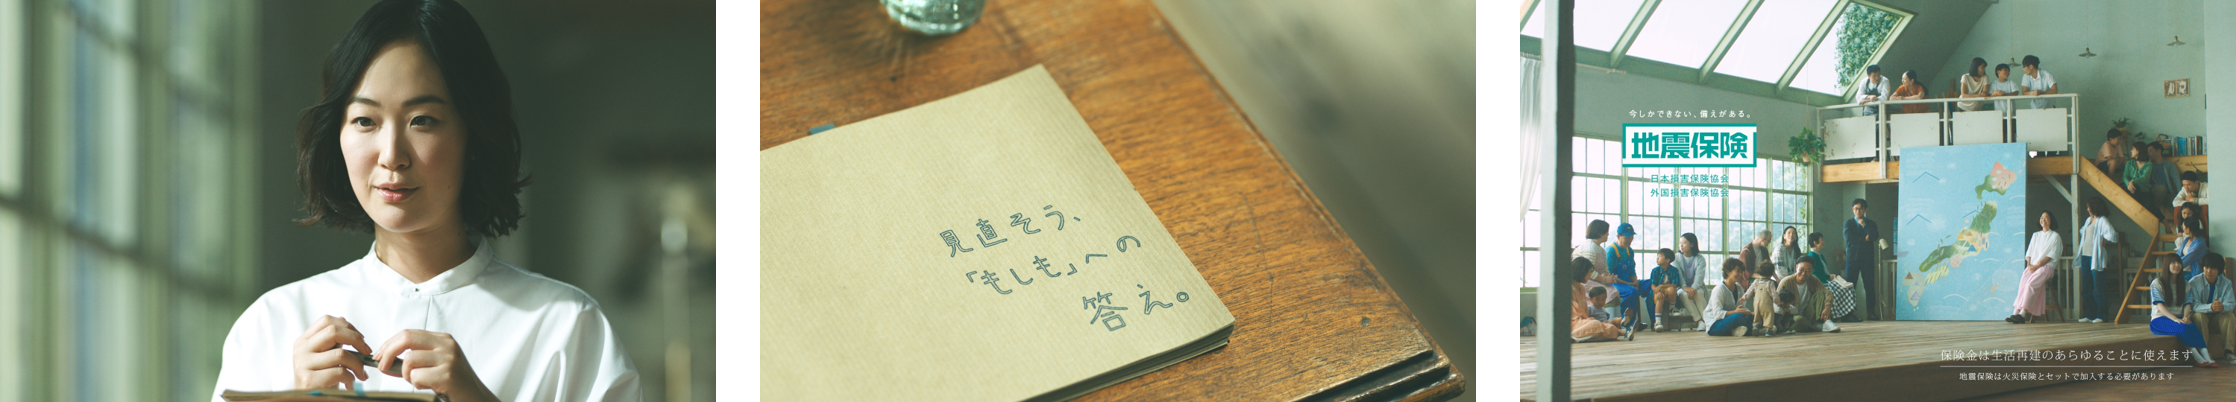 見直そう、
「もしも」への
答え。
今しかできない、備えがある。
地震保険
日本損害保険協会
外国損害保険協会
保険金は生活再建のあらゆることに使えます
地震保険は火災保険とセットで加入する必要があります